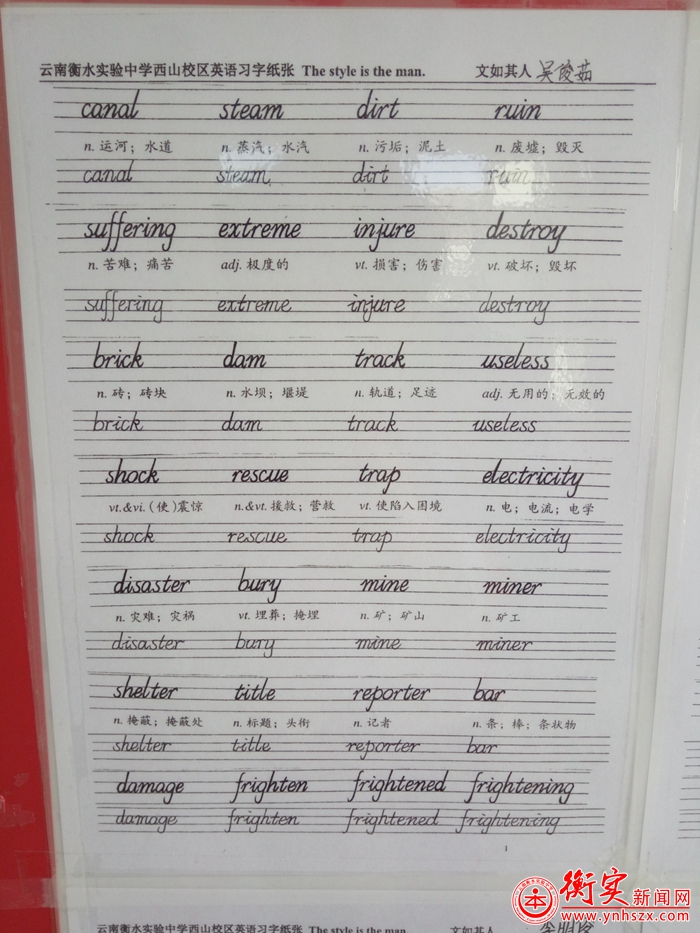 云南衡水实验中学西山校区英语习字纸张 The style is the man. 文如其人 吴俊茹
canal steam dirt ruin
n. 运河；水道 n. 蒸汽；水汽 n. 污垢；泥土 n. 废墟；毁灭
canal steam dirt ruin
suffering extreme injure destroy
n. 苦难；痛苦 adj. 极度的 vt. 损害；伤害 vt. 破坏；毁坏
suffering extreme injure destroy
brick dam track useless
n. 砖；砖块 n. 水坝；堰堤 n. 轨道；足迹 adj. 无用的；无效的
brick dam track useless
shock rescue trap electricity
vt.&vi. (使)震惊 n.&vt. 援救；营救 vt. 使陷入困境 n. 电；电流；电学
shock rescue trap electricity
disaster bury mine miner
n. 灾难；灾祸 vt. 埋葬；掩埋 n. 矿；矿山 n. 矿工
disaster bury mine miner
shelter title reporter bar
n. 掩蔽；掩蔽处 n. 标题；头衔 n. 记者 n. 条；棒；条状物
shelter title reporter bar
damage frighten frightened frightening
damage frighten frightened frightening
1
衡实新闻网
www.ynhszx.com
云南衡水实验中学西山校区英语习字纸张 The style is the man. 文如其人